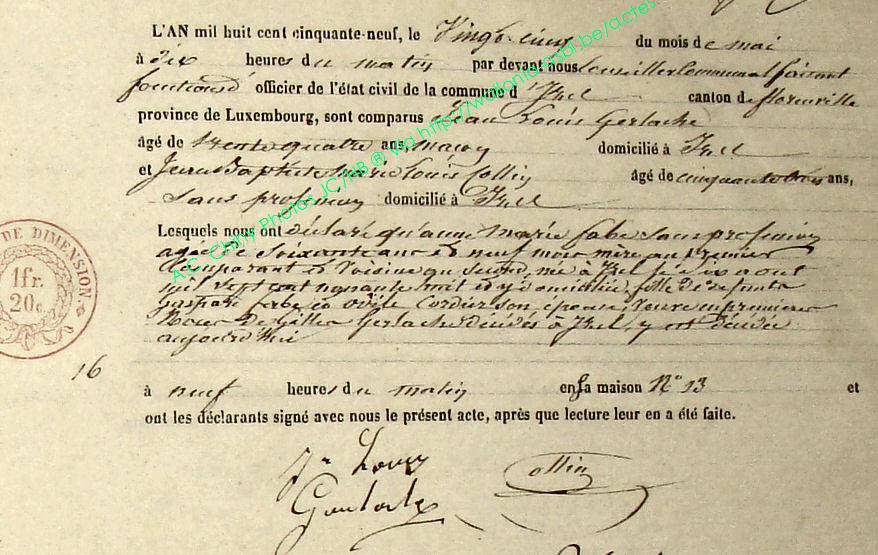 L'AN mil huit cent cinquante-neuf, le Vingt cinq du mois de mai
à dix heures du matin par devant nous Conseiller Communal faisant
fonctions d' officier de l'état civil de la commune d'Izel canton de florenville
province de Luxembourg, sont comparus Jean Louis Gerlache
âgé de trente quatre ans, domicilié à Izel
et Jean Baptiste Marie Louis Collin âgé de cinquante trois ans,
sans profession domicilié à Izel
Lesquels nous ont déclaré qu'anne Marie fabe sans profession
agée de Soixante ans et neuf mois mère au premier
Comparant et Voisine au Second, née à Izel le dix aout
mil sept cent nonante huit et y domiciliée, fille de defunts
gaspard fabe et odile Cordier son épouse, Veuve en premieres
Noces de Gerlache décédés à Izel, y est décédée
aujourd'hui
à neuf heures du matin en sa maison N° 13 et
ont les déclarants signé avec nous le présent acte, après que lecture leur en a été faite.
DE DIMENSION
1fr.
20c.
16
Jn Louis
Gerlache
Collin